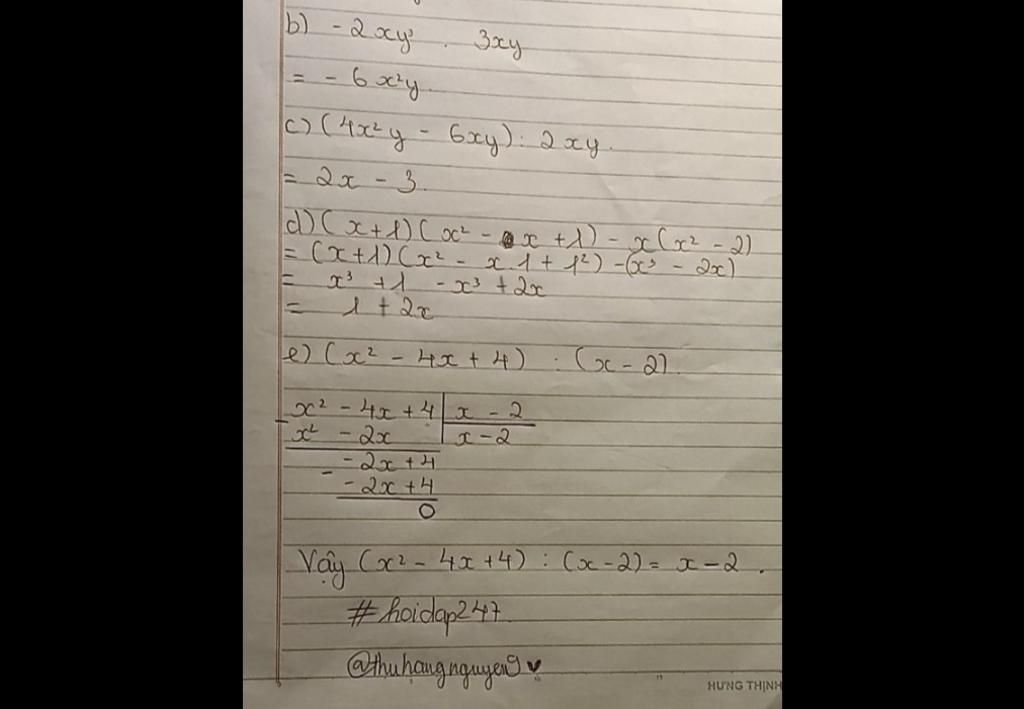 b) - 2xy³ . 3xy
= - 6x²y
c) (4x²y - 6xy) : 2xy.
= 2x - 3.
d) (x+1)(x² - x +1) - x(x² - 2)
= (x+1)(x² - x.1 + 1²) - (x³ - 2x)
= x³ +1 - x³ +2x
= 1 + 2x
e) (x² - 4x + 4) : (x - 2)
x² - 4x + 4 | x - 2
- x² - 2x | x - 2
- 2x + 4
- - 2x + 4
0
Vậy (x² - 4x +4) : (x - 2) = x - 2 .
#hoidap247
@thuhangnguyen9
HƯNG THỊNH